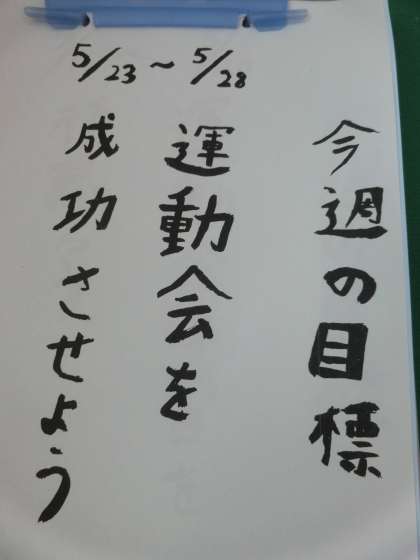 今週の目標
5/23～5/28
運動会を
成功させよう